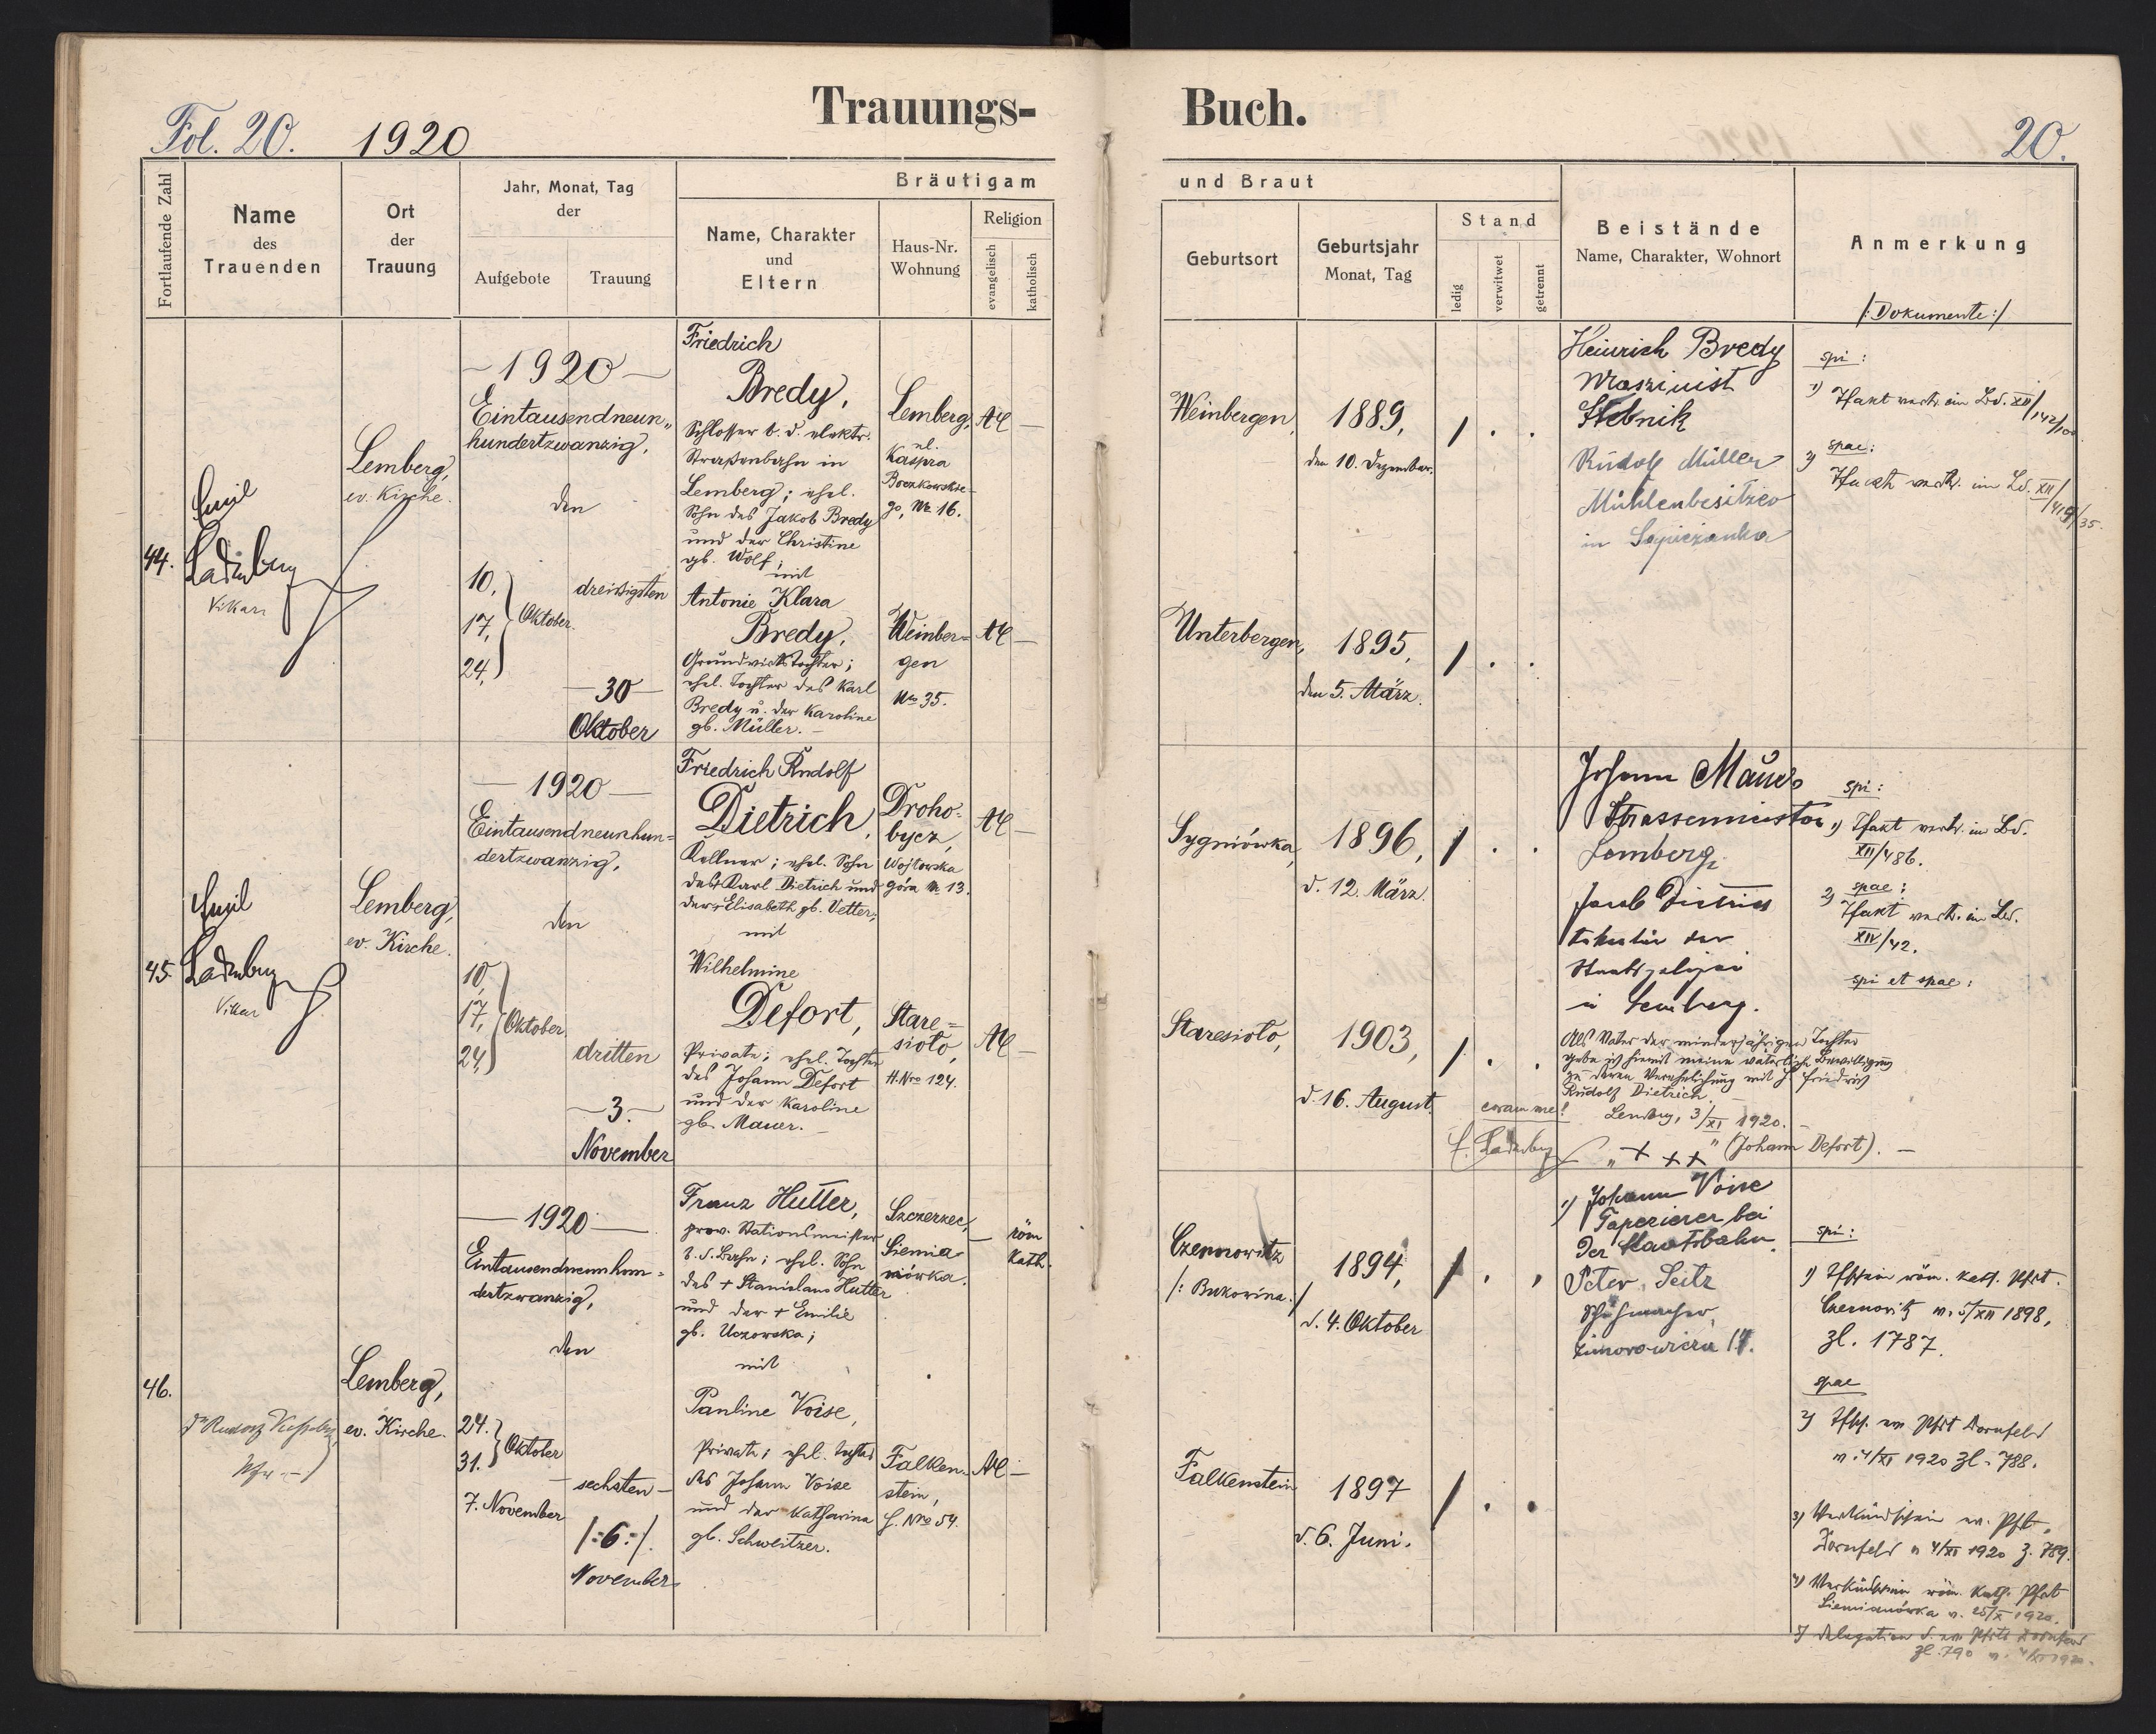 Trauungs-
Buch.
Fol. 20. 1920
20.
Fortlaufende Zahl
Name
des
Trauenden
Ort
der
Trauung
Jahr, Monat, Tag
der
Aufgebote
Trauung
Bräutigam
Name, Charakter
und
Eltern
Haus-Nr.
Wohnung
Religion
evangelisch
katholisch
und Braut
Geburtsort
Geburtsjahr
Monat, Tag
Stand
ledig
verwitwet
getrennt
Beistände
Name, Charakter, Wohnort
Anmerkung
/: Dokumente :/
44.
Emil
Ladenberger
Vikar
Lemberg,
ev. Kirche.
— 1920 —
Eintausendneun-
hundertzwanzig,
den
10,
17,
24,
Oktober.
dreissigsten
— 30 —
Oktober
Friedrich
Bredy,
Schlosser b. d. elektr.
Strassenbahn in
Lemberg; ehel.
Sohn des Jakob Bredy
und der Christine
gb. Wolf;
mit
Antonie Klara
Bredy,
Grundwirtstochter;
ehel. Tochter des Karl
Bredy u. der Karoline
gb. Müller. —
Lemberg,
ul.
Kaspra
Boczkowskie-
go, Nr. 16.
AC —
Weinber-
gen
Nr. 35.
AC —
Weinbergen,
1889,
den 10. Dezember.
/ . .
Unterbergen,
1895,
den 5. März.
/ . .
Heinrich Bredy
Maszinist
Stebnik
Rudolf Müller
Mühlenbesitzer
in Sapiezanka
spi:
1)
im Bd. XII/142/100
2) spae:
im Bd. XII/419/35.
45.
Emil
Ladenberger
Vikar
Lemberg,
ev. Kirche.
— 1920 —
Eintausendneunhun-
dertzwanzig,
den
10,
17,
24,
Oktober
dritten
— 3. —
November
Friedrich Rudolf
Dietrich,
Kellner; ehel. Sohn
des Karl Dietrich und
der Elisabeth gb. Vetter;
mit
Wilhelmine
Defort,
Private; ehel. Tochter
des Johann Defort
und der Karoline
gb. Mauer. —
Droho-
bycz,
Wojtowska
góra Nr. 13.
AC —
Stare-
sioło,
H. Nro 124.
AC —
Sygniówka,
1896,
d. 12. März.
/ . .
Staresioło,
1903,
d. 16. August.
/ . .
Johann Mauer
Strassenmeister
Lemberg,
Jacob Dietrich
der
Staatspolizei
in Lemberg.
Als Vater der minderjährigen Tochter
gebe ich hiemit meine väterliche Bewilligung
zu deren Verehelichung mit H. Friedrich
Rudolf Dietrich. —
Lemberg, 3/XI 1920. —
coram me!
E. Ladenberger
„ + + + " (Johann Defort). —
spi:
1)
im Bd.
XII/486.
2) spae:
im Bd.
XIV/42.
spi et spae:
46.
Dr Rudolf
Lemberg,
ev. Kirche.
— 1920 —
Eintausendneunhun-
dertzwanzig,
den
24.
31.
Oktober
7. November
sechsten —
/:6:/.
November
Franz Hutter,
prov. Stationsmeister
b. d. Bahn; ehel. Sohn
des + Stanislaus Hutter
und der + Emilie
gb. Uczowska;
mit
Pauline Voise,
Private; ehel. Tochter
des Johann Voise
und der Katharina
gb. Schweitzer.
Szczerzec,
Siemia-
nówka.
— röm
kath.
Falken-
stein,
H. Nro 54.
AC —
Czernowitz
/: Bukowina :/
1894,
d. 4. Oktober
/ . .
Falkenstein
1897
d. 6. Juni.
/ . .
1) Johann Voise
Taperierer bei
der Staatsbahn.
Peter Seitz
Schuhmacher,
Zimorowicza 17.
spi:
1) Tfschein röm. kath. Pfrt.
Czernovitz v. 5/XII 1898,
Zl. 1787.
spae
2) Tfsch. ev. Pfrt Dornfeld
v. 4/XI 1920 Zl. 788.
3) Verkündschein ev. Pfrt.
Dornfeld v. 4/XI 1920 Z. 789.
4) Verkündschein röm. kath. Pfrt
Siemianówka v. 25/X 1920.
5) Delegation d. ev. Pfrts Dornfeld
Zl. 790 v. 4/XI 1920.